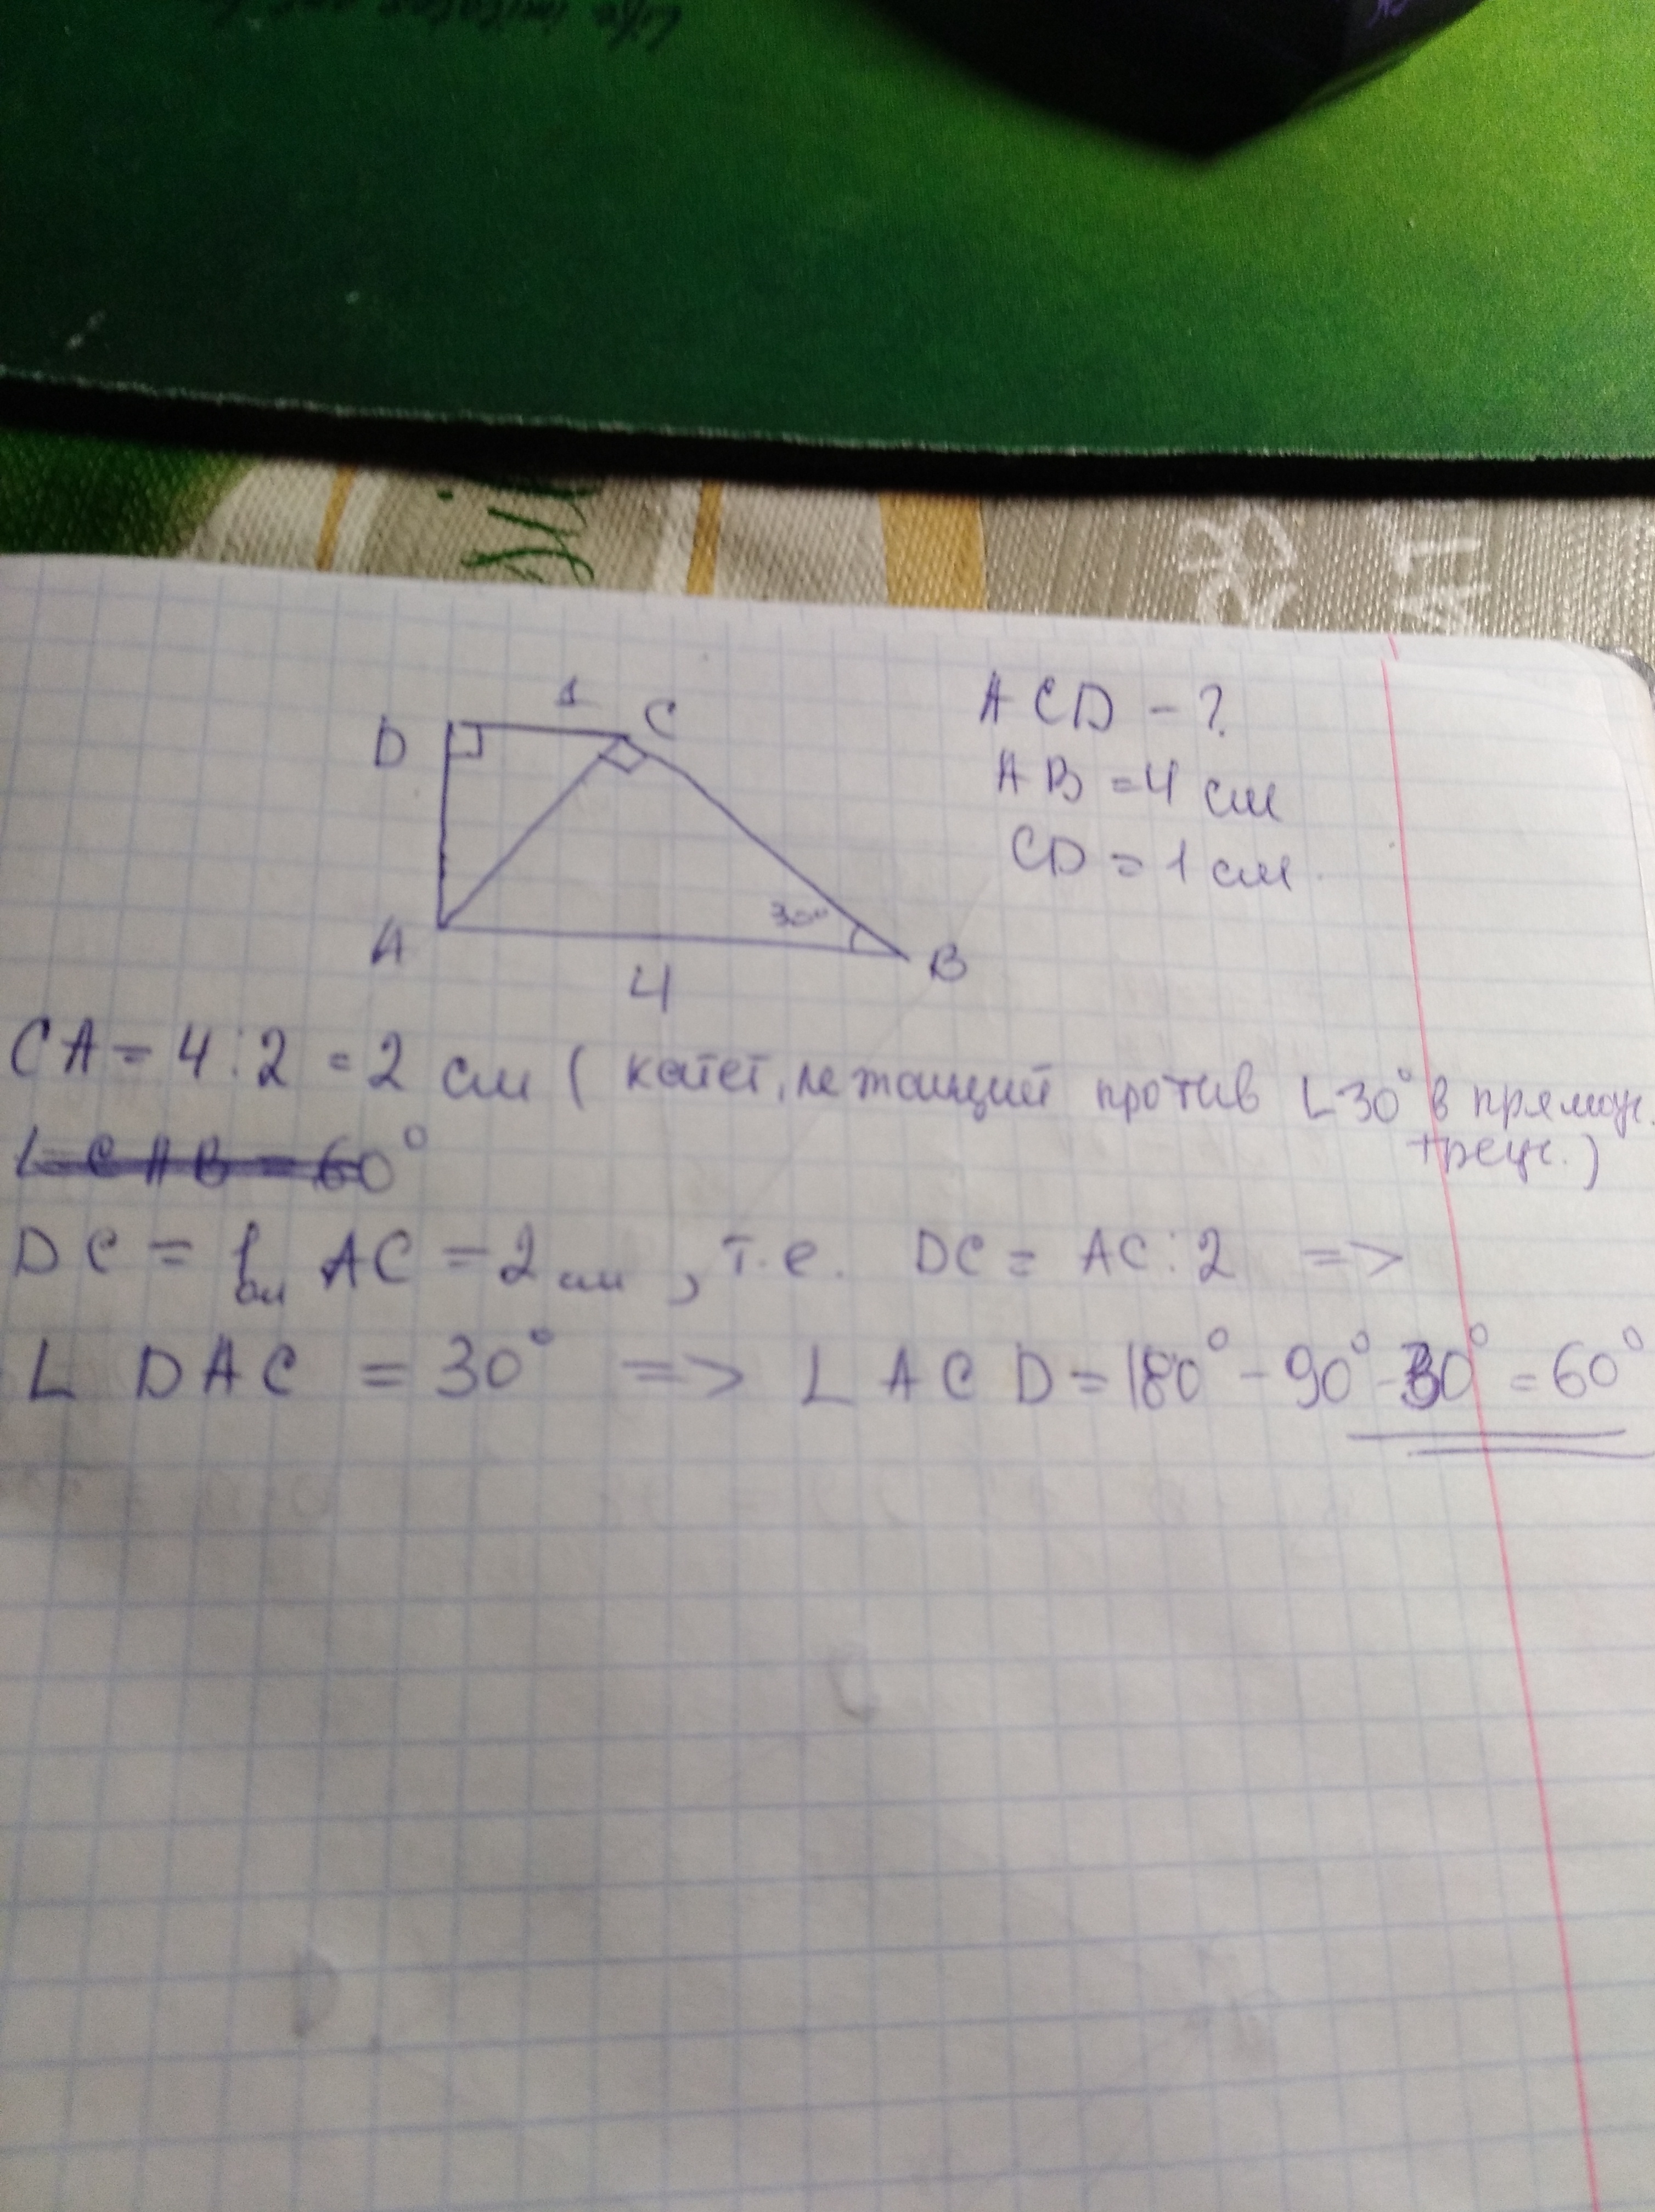 1
D
C
A
B
30°
4
ACD - ?
AB = 4 см
CD = 1 см
CA = 4 : 2 = 2 см ( катет, лежащий против ∟30° в прямоуг.
треуг. )
∟CAB = 60°
DC = 1 см AC = 2 см , т.е. DC = AC : 2 =>
∟DAC = 30° => ∟ACD = 180° - 90° - 30° = 60°